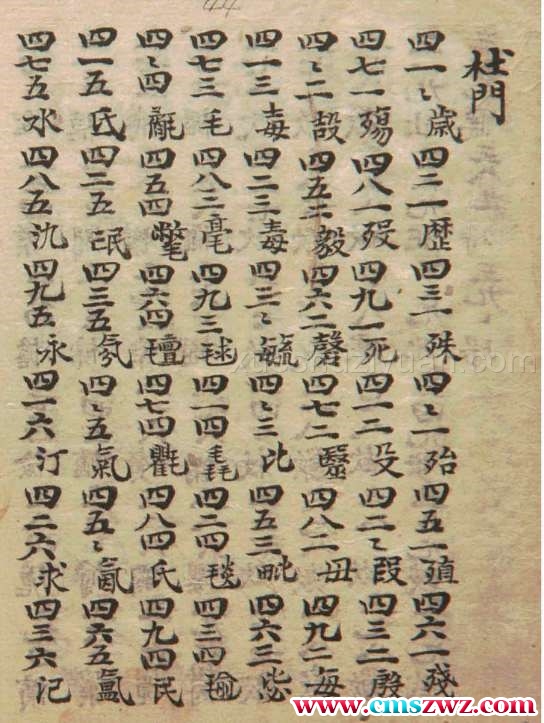 杜門
四一〻歲四二一歷四三一殊四〻一殆四五一殖四六一殘
四七一殤四八一歿四九一死四一二殳四二〻段四三二殿
四〻二四五二毅四六二四七二毉四八二毌四九二每
四一三毒四二三毒四三〻毓四〻三比四五三毗四六三毖
四七三毛四八三毫四九三毬四一四毳四二四毯四三四毹
四〻四四五四氅四六四氊四七四氍四八四氏四九四民
四一五氐四二五氓四三五氛四〻五氣四五〻氤四六五氳
四七五水四八五氿四九五永四一六汀四二六求四三六汜
www.cmszwz.com